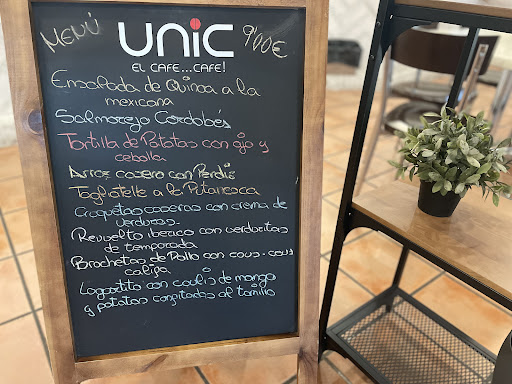 MENÚ
UNiC
9'00€
EL CAFE...CAFE!
Ensalada de Quinoa a la
mexicana
Salmorejo Cordobés
Tortilla de Patatas con ajo y
cebolla
Arroz casero con Perdiz
Tagliatelle a la Putanesca
Croquetas caseras con crema de
verduras.
Revuelto iberico con verduritas
de temporada
Brochetas de Pollo con cous-cous
Lagartito con coulis de mango
y patatas confitadas al tomillo